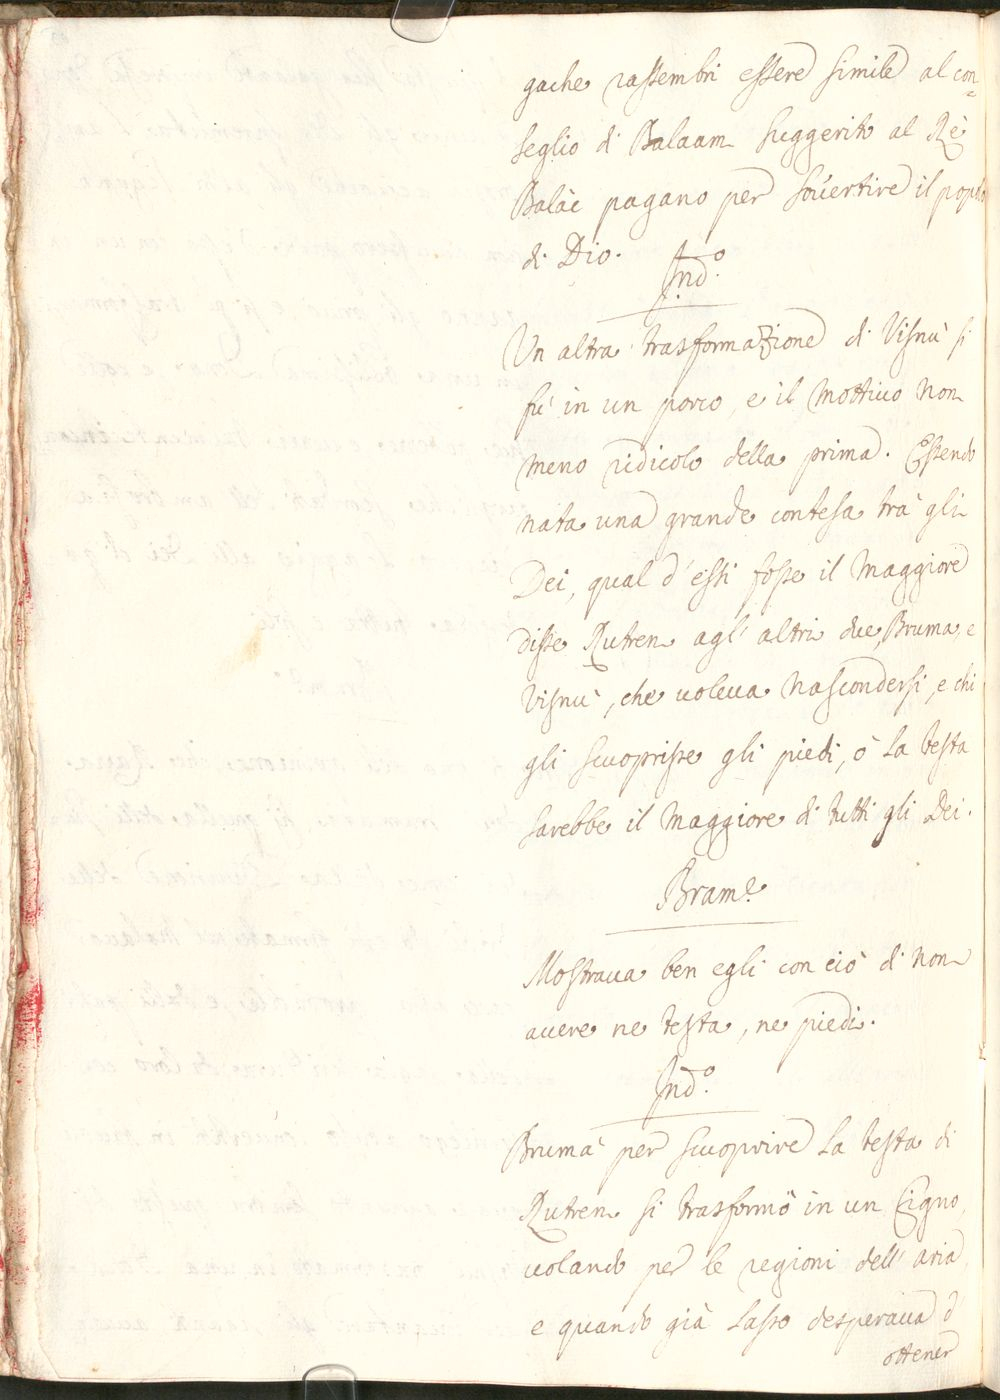 gache rassembri essere simile al con=
seglio di Balaam suggerito al Rè
Balàc pagano per souertire il popolo
di Dio.
Ind.o
Un altra trasformazione di Visnù si
fù in un porco, e il mottiuo non
meno ridicolo della prima. Essendo
nata una grande contesa trà gli
Dei, qual d'essi fosse il maggiore
disse Rutren agl'altri due, Bruma, e
Visnù, che uoleua nascondersi, e chi
gli scuoprisse gli piedi, ò la testa
sarebbe il maggiore di tutti gli Dei.
Bram.e
Mostraua ben egli con ciò di non
auere ne testa, ne piedi.
Ind.o
Brumà per scuoprire la testa di
Rutren si trasformò in un Cigno,
uolando per le regioni dell'aria,
e quando già lasso desperaua d
ottener